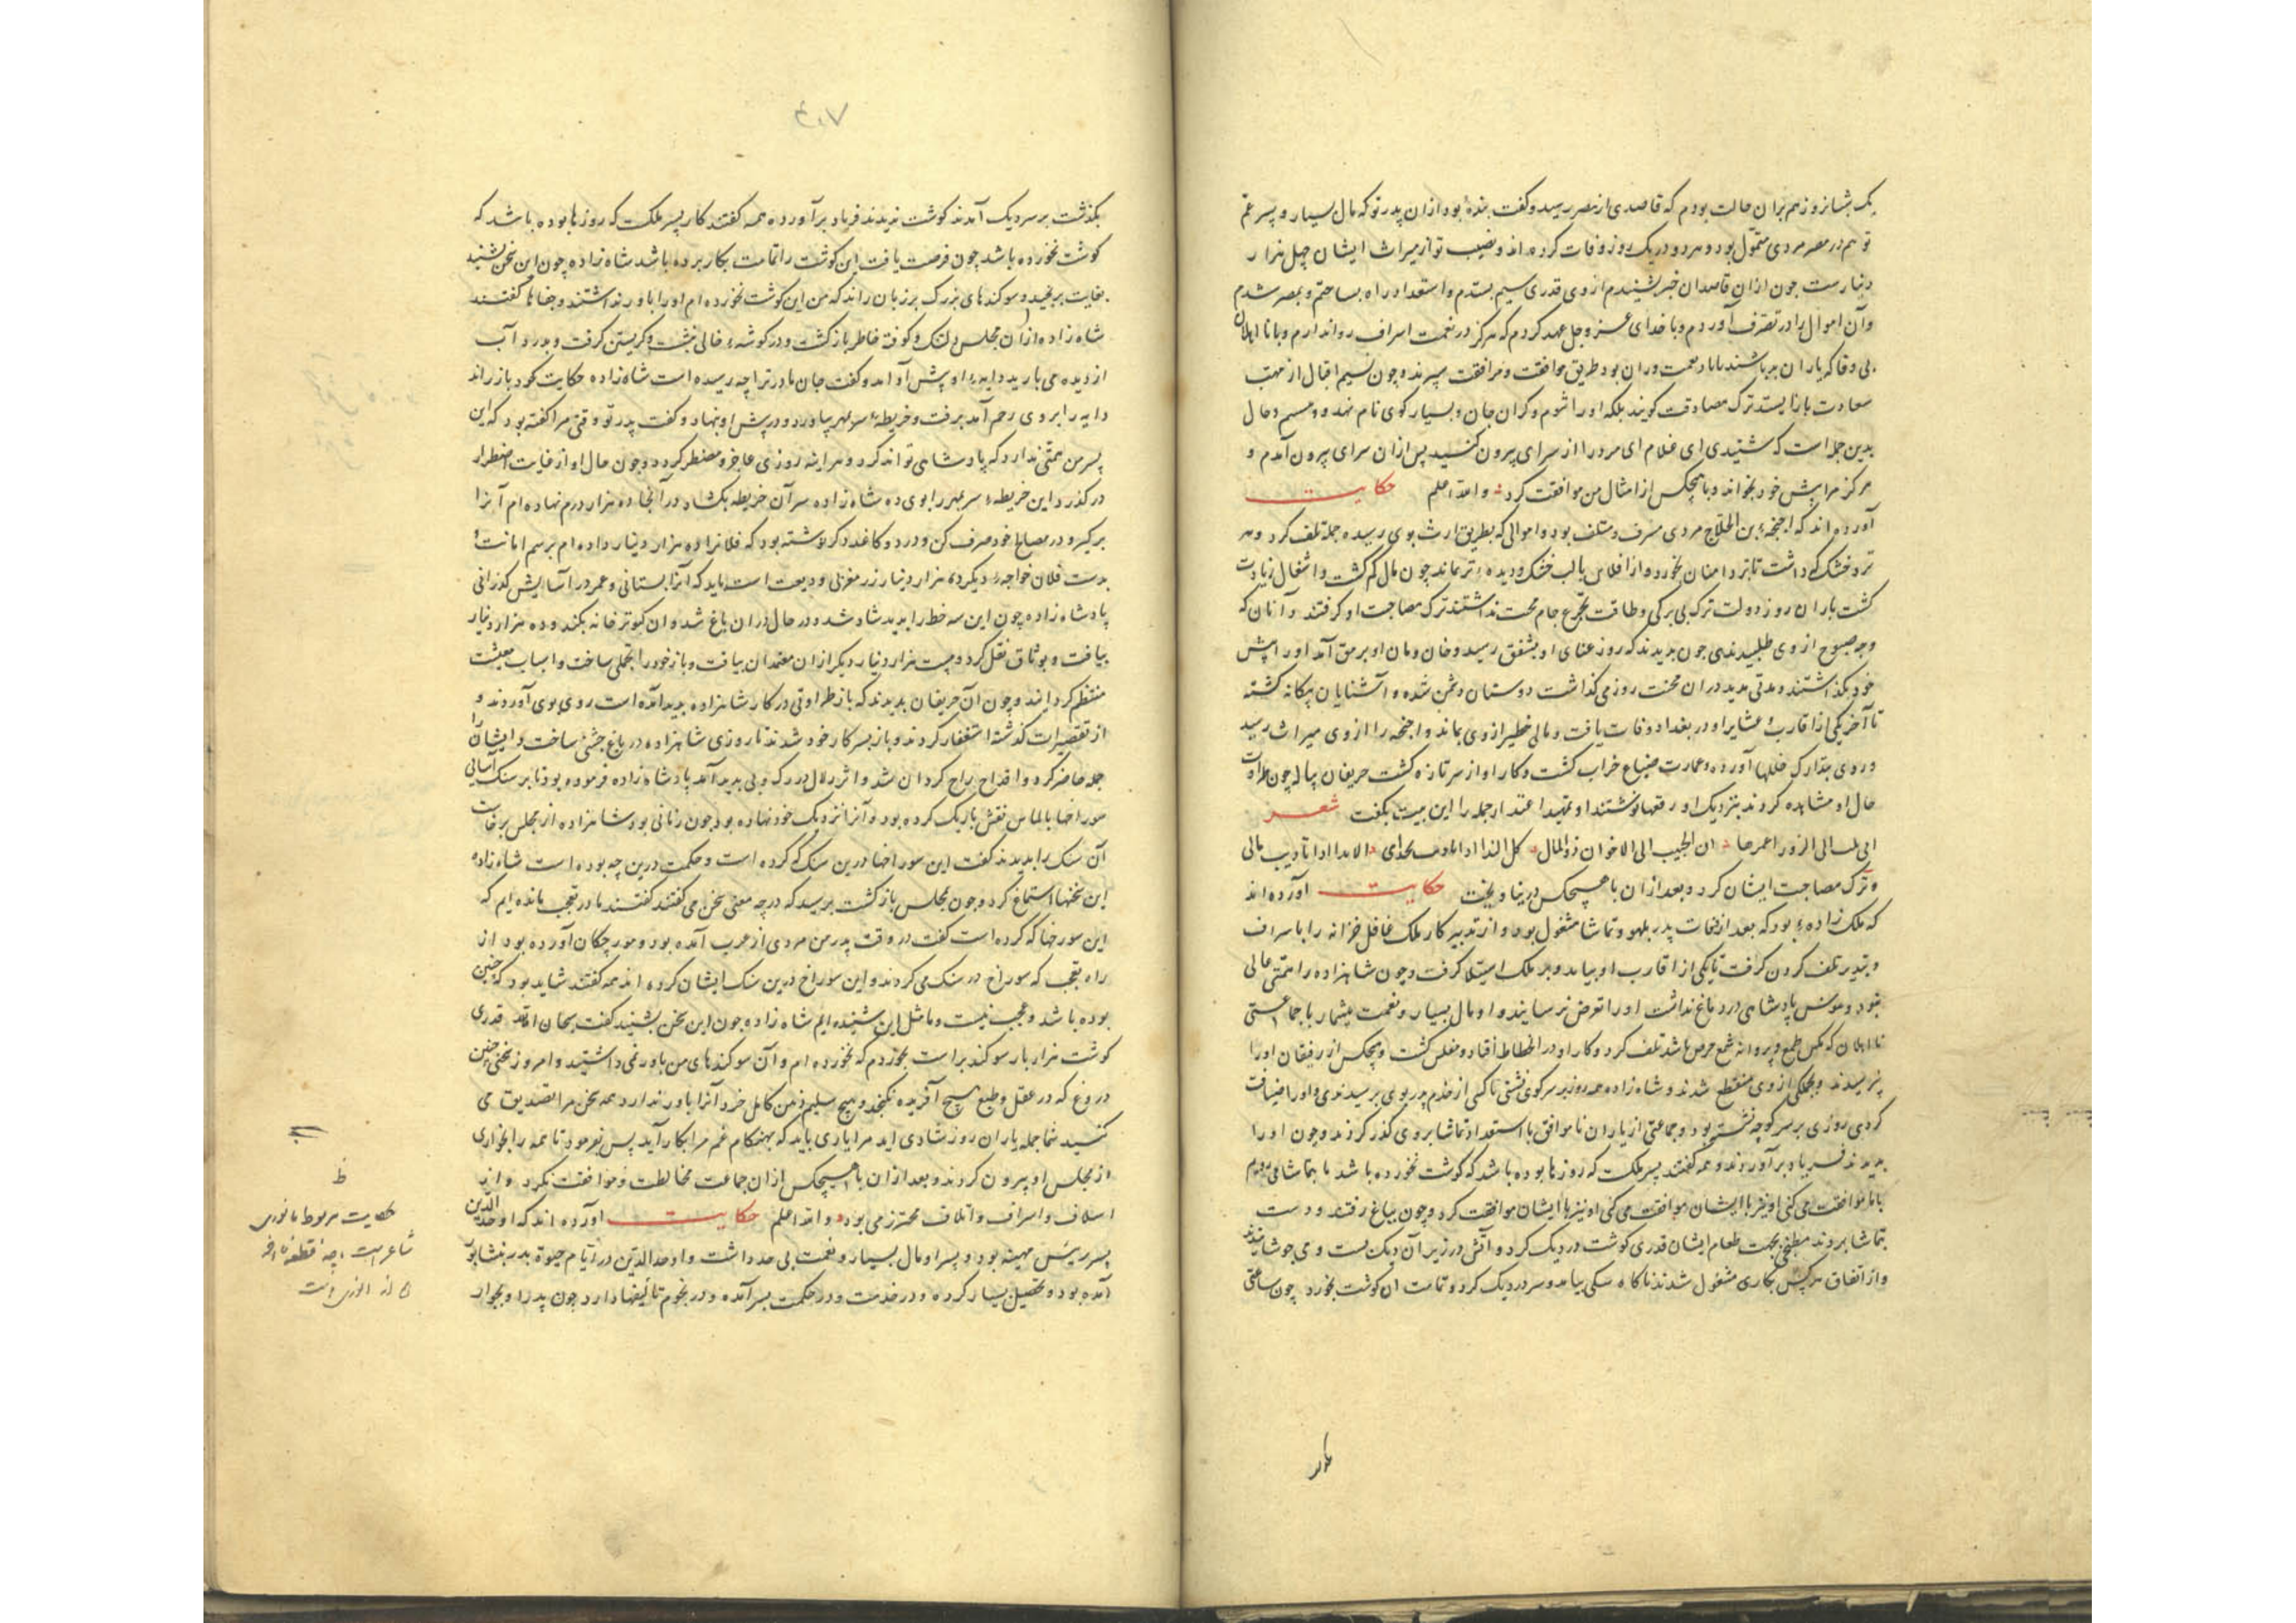 یک شبانروز هم بران حالت بودم که قاصدی از مصر رسید و گفت بنده بود ازان پدر تو که مال بسیار و پسر عم
تو هم در مصر مردی متمول بود و هر دو در یک روز وفات کرده اند و نصیب تو از میراث ایشان چهل هزار
دینارست چون ازان قاصدان خبر بشنیدم از وی قدری سیم بستدم و استعداد راه بساختم و بمصر شدم
وآن اموال را در تصرف آوردم و با خدای عز و جل عهد کردم که هرگز در نعمت اسراف روا ندارم و با نااهلان
بی وفا که یاران بد باشند طریق موافقت و مرافقت سپرند و چون نسیم اقبال از مهب
سعادت باز ایستد ترک مصادقت کویند بلکه او را شوم و کران جان و بسیار کوی نام نهد و حال
بدین جمله است که شنیدی ای غلام ای مرد را از سرای بیرون کنید پس ازان سرای بیرون آمدم و
هرکز مرا پیش خود نخواند و با هیچکس از امثال من موافقت نکرد والله اعلم حکایت
آورده اند که بن الحلاج مردی مسرف و متلف بود و اموالی که بطریق ارث بوی رسیده جمله تلف کرد و هر
تر و خشک که داشت با تردامنان بخورد و از افلاس با لب خشک و دیده تر بماند چون مال کم کشت و اشغال زیادت
کشت یاران روز دولت ترک بی برکی و طاقت تجرع جام محنت نداشتند ترک مصاحبت او کرفتند و آنان که
وجه صبوح از وی طلبیدندی چون بدیدند که روز غنای او بشفق رسید و خان و مان او برمق آمد او را پیش
خود نگذاشتند و مدتی مدید دران محنت روز می کذاشت دوستان دشمن شده و آشنایان بیکانه کشته
تا آخر یکی از اقارب و عشایر او در بغداد وفات یافت و مالی خطیر از وی بماند و را از وی میراث رسید
و روی بتدارک خللها آورد و عمارت ضیاع خراب کشت و کار او از سر تازه کشت حریفان پیاله چون طراوت
حال او مشاهده کردند بنزدیک او رقعها نوشتند او تمهید اعتذار جمله را این بیت بگفت شعر
الی الزورا اعمرها ان الحبیب الی الاخوان ذو المال کل الندا اذا نادیت الا ندا اذا نادیت مالی
و ترک مصاحبت ایشان کرد و بعد ازان با هیچکس در نیاویخت حکایت آورده اند
که ملک زاده بود که بعد از وفات پدر بلهو و تماشا مشغول بود و از تدبیر کار ملک غافل خزانه را باسراف
و تبذیر تلف کردن کرفت تا یکی از اقارب او بیامد و بر ملک استیلا کرفت و چون شاهزاده را همتی عالی
نبود و هوس پادشاهی در دماغ نداشت او را تعرض نرسانیدند و او مال بسیار و نعمت بیشمار با جماعتی
نااهلان که مکس طمع و پروانه شمع حرص باشد تلف کرد و کار او در انحطاط افتاد و مفلس کشت و هیچکس از رفیقان او را
نپرسیدند و بجملکی از وی منقطع شدند و شاه زاده همه روز بر سر کوی نشستی تا کسی از خدم پدر بوی برسیدندی و او را ضیافت
کردی روزی بر سر کوچه نشسته بود و جماعتی از یاران ناموافق با استعداد تماشا بروی گذر کردند و چون او را
بدیدند فریاد برآوردند و همه گفتند پسر ملک که روزها بوده باشد که کوشت نخورده باشد ما بتماشا می رویم
با ما موافقت می کنی او نیز با ایشان موافقت کرد و چون بباغ رفتند و دست
بتماشا بردند مطبخی بجهت طعام ایشان قدری کوشت در دیک کرد و آتش در زیر آن دیک بست و می جوشانید
و از اتفاق هر کس بکاری مشغول شدند ناکاه سکی بیامد و سر در دیک کرد و تمامت آن کوشت بخورد چون ساعتی
۴۰۷
بکذشت بر سر دیک آمدند کوشت ندیدند فریاد برآوردند همه گفتند کار پسر ملکست که روزها بوده باشد که
کوشت نخورده باشد چون فرصت یافت این کوشت را تمامت بکار برده باشد شاه زاده چون این سخن بشنید
بغایت برنجید و سوکندهای بزرک بر زبان راند که من این کوشت نخورده ام او را باور نداشتند و جفاها گفتند
شاه زاده ازان مجلس دلتنک و کوفته خاطر بازکشت و در کوشه خالی نشست و کریستن کرفت و بدرد آب
از دیده می بارید دایه او پیش آو آمد و گفت جان مادر ترا چه رسیده است شاه زاده حکایت خود باز راند
دایه را بروی رحم آمد برفت و خریطه سر بمهر بیاورد و در پیش او بنهاد و گفت پدر تو وقتی مرا گفته بود که این
پسر من همتی ندارد که پادشاهی تواند کرد و هر آینه روزی عاجز و مضطر کردد و چون حال او از غایت اضطرار
در کذرد این خریطه سر بمهر را بوی ده شاه زاده سر آن خریطه بکشاد در آنجا ده هزار درم نهاده ام آنرا
برکیر و در مصالح خود صرف کن و در دو کاغذ دکر نوشته بود که فلانرا ده هزار دینار داده ام برسم امانت
بدست فلان خواجه دیکر ده هزار دینار زر مغربی ودیعت است باید که آنرا بستانی و عمر در آسایش کذرانی
پادشاه زاده چون این سه خط را بدید شاد شد و در حال دران باغ شد و ان کبوتر خانه بکند و ده هزار دینار
بیافت و بوثاق نقل کرد و بیست هزار دینار دیکر ازان معتمدان بیافت و باز خود را تجملی ساخت و اسباب معیشت
منتظم کردانید و چون آن حریفان بدیدند که باز طراوتی در کار شاهزاده پدید آمده است روی بوی آوردند و
از تقصیرات کذشته استغفار کردند و باز بسر کار خود شدند تا روزی شاهزاده در باغ جشنی ساخت و ایشان را
جمله حاضر کرد و اقداح راح کردان شد و اثر زلال در رک و پی پدید آمد پادشاه زاده فرموده بود تا بر سنک آسیائی
سوراخها بالماس نقش باریک کرده بود و آنرا نزدیک خود نهاده بود چون زمانی بود شاهزاده از مجلس برخاست
آن سنک را بدیدند گفت این سوراخها درین سنک که کرده است و حکمت درین چه بوده است شاه زاده
این سخنها استماع کرد و چون بمجلس بازکشت پرسید که در چه معنی سخن می گفتند گفتند ما در تعجب مانده ایم که
این سوراخها که کرده است گفت در وقت پدر من مردی از عرب آمده بود و مورچکان آورده بود از
راه تعجب که سوراخ در سنک می کردند و این سوراخ درین سنک ایشان کرده اند همه گفتند شاید بود که چنین
بوده باشد و عجب نیست و ما مثل این شنیده ایم شاه زاده چون این سخن بشنید گفت سبحان الله قدری
کوشت هزار بار سوکند براست بخوردم که نخورده ام و آن سوکندهای من باور نمی داشتید و امروز سخنی چنین
دروغ که در عقل و طبع هیچ آفریده نکنجد و هیچ سلیم ذهن کامل خرد آنرا باور ندارد همه سخن مرا تصدیق می
کنید شما جمله یاران روز شادی اید مرا یاری باید که بهنکام غم مرا بکار آید پس بفرمود تا همه را بخواری
از مجلس او بیرون کردند و بعد ازان با هیچکس ازان جماعت مخالطت و موافقت نکرد و از
اسلاف و اسراف و اتلاف محترز می بود والله اعلم حکایت آورده اند که اوحد الدین
پسر رئیس مهینه بود و پسر او مال بسیار و نعمت بی حد داشت و اوحد الدین در ایام حیوة پدر بنشابور
آمده بود و تحصیل بسیار کرده و در خدمت و در حکمت بسر آمده و در نجوم تألیفها دارد چون پدر او بجوار
ظ
حکایت مربوط بانوری
شاعر است